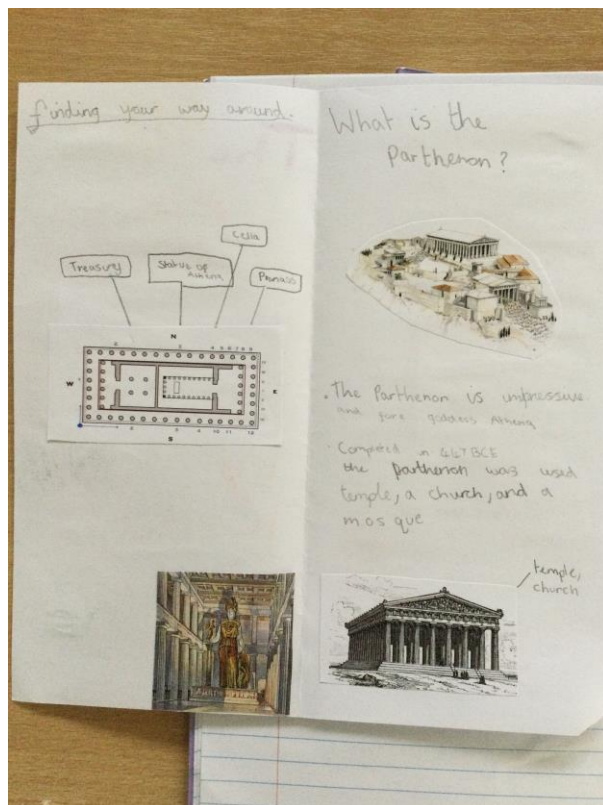 finding your way around.
Cella
Treasury
Statue of
Athena
Pronaos
N
W
E
S
What is the
Parthenon?
. The Parthenon is impressive
and fore goddess Athena
. Completed in 447 BCE
the parthenon was used
temple, a church, and a
mosque
temple,
church